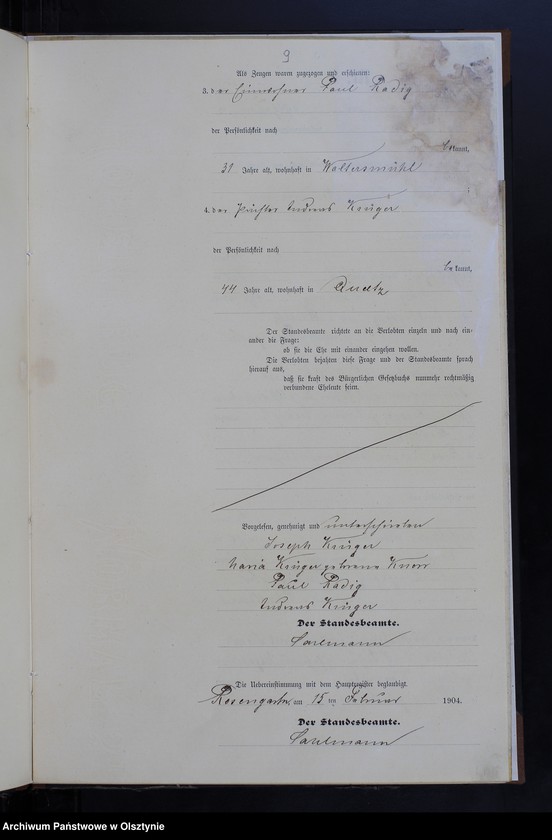 9
Als Zeugen waren zugezogen und erschienen:
3. der Einwohner Paul Radig
der Persönlichkeit nach
bekannt,
31 Jahre alt, wohnhaft in Woltersmühl
;
4. der Pächter Andreas Krüger
der Persönlichkeit nach
bekannt,
44 Jahre alt, wohnhaft in Queetz
Der Standesbeamte richtete an die Verlobten einzeln und nach ein-
ander die Frage:
ob sie die Ehe mit einander eingehen wollen.
Die Verlobten bejahten diese Frage und der Standesbeamte sprach
hierauf aus,
daß sie kraft des Bürgerlichen Gesetzbuchs nunmehr rechtmäßig
verbundene Eheleute seien.
Vorgelesen, genehmigt und unterschrieben
Joseph Krüger
Maria Krüger geborene Knorr
Paul Radig
Andreas Krüger
Der Standesbeamte.
Die Uebereinstimmung mit dem Hauptregister beglaubigt.
Rosengarth, am 15 ten Februar 1904.
Der Standesbeamte.
Archiwum Państwowe w Olsztynie